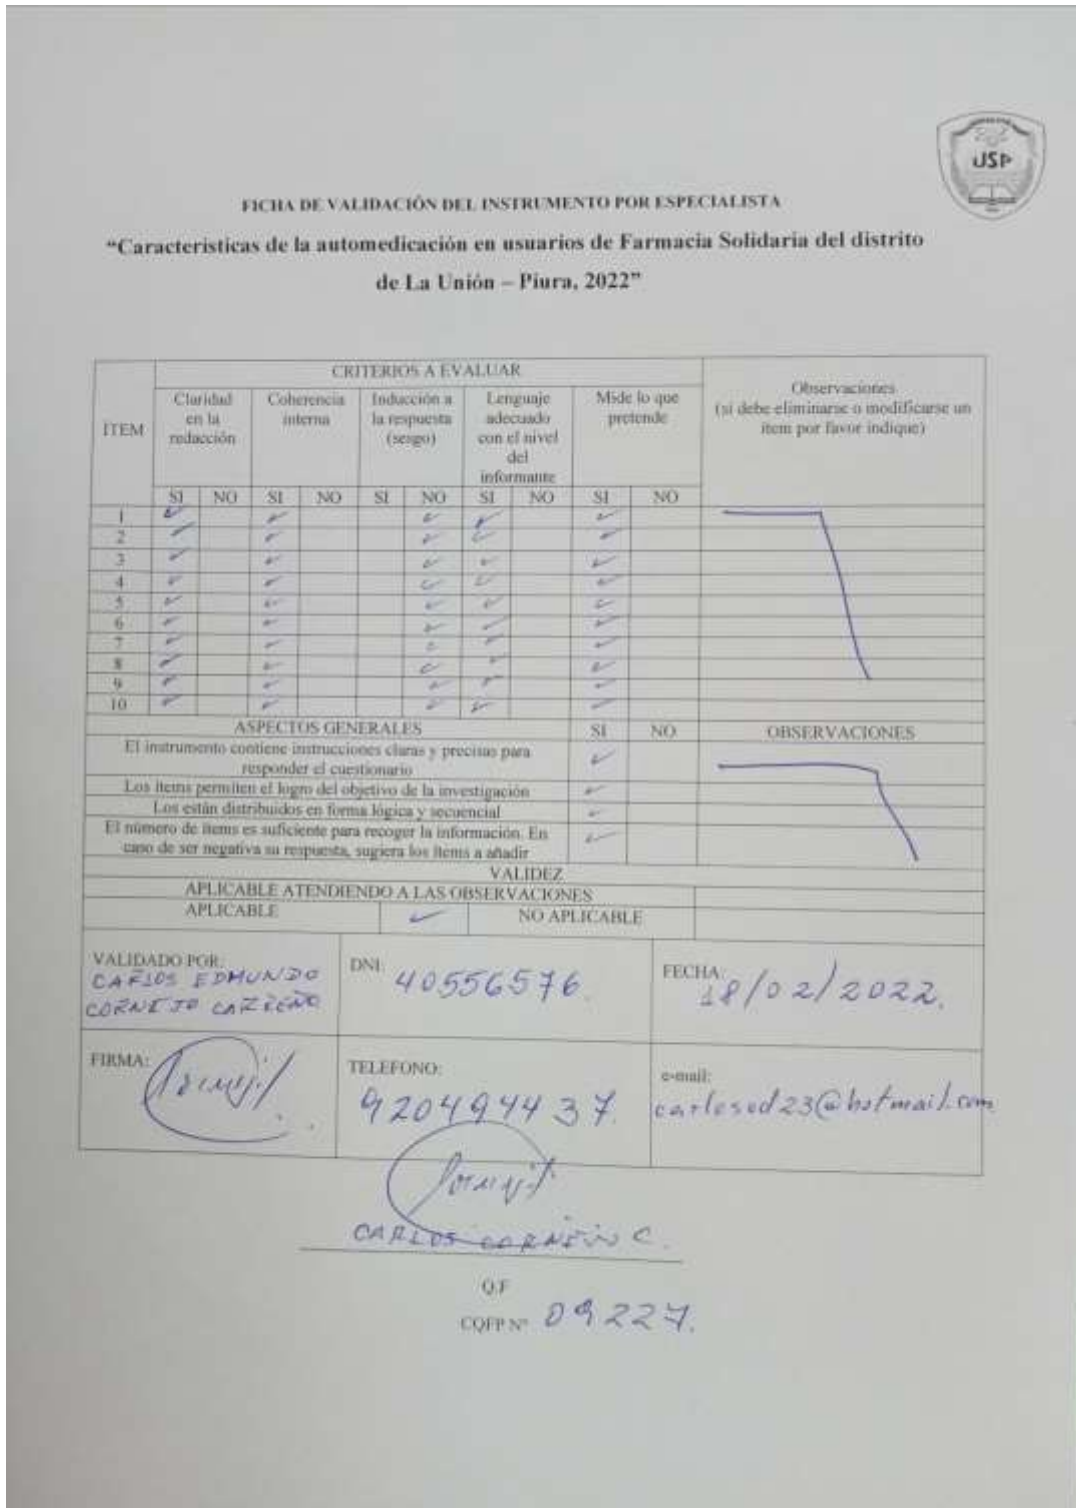 USP
FICHA DE VALIDACIÓN DEL INSTRUMENTO POR ESPECIALISTA
“Características de la automedicación en usuarios de Farmacia Solidaria del distrito
de La Unión – Piura, 2022”
ITEM
CRITERIOS A EVALUAR
Observaciones
(si debe eliminarse o modificarse un
ítem por favor indique)
Claridad
en la
redacción
Coherencia
interna
Inducción a
la respuesta
(sesgo)
Lenguaje
adecuado
con el nivel
del
informante
Mide lo que
pretende
SI NO SI NO SI NO SI NO SI NO
1 ✓ ✓ ✓ ✓ ✓
2 ✓ ✓ ✓ ✓ ✓
3 ✓ ✓ ✓ ✓ ✓
4 ✓ ✓ ✓ ✓ ✓
5 ✓ ✓ ✓ ✓ ✓
6 ✓ ✓ ✓ ✓ ✓
7 ✓ ✓ ✓ ✓ ✓
8 ✓ ✓ ✓ ✓ ✓
9 ✓ ✓ ✓ ✓ ✓
10 ✓ ✓ ✓ ✓ ✓
ASPECTOS GENERALES SI NO OBSERVACIONES
El instrumento contiene instrucciones claras y precisas para
responder el cuestionario ✓
Los ítems permiten el logro del objetivo de la investigación ✓
Los están distribuidos en forma lógica y secuencial ✓
El número de ítems es suficiente para recoger la información. En
caso de ser negativa su respuesta, sugiera los ítems a añadir ✓
VALIDEZ
APLICABLE ATENDIENDO A LAS OBSERVACIONES
APLICABLE ✓ NO APLICABLE
VALIDADO POR:
CARLOS EDMUNDO
CORNEJO CARREÑO
DNI: 40556576.
FECHA: 18/02/2022.
FIRMA:
TELEFONO:
920494437.
e-mail:
carlosed23@hotmail.com
CARLOS CORNEJO C.
Q.F
CQFP Nº 09227.